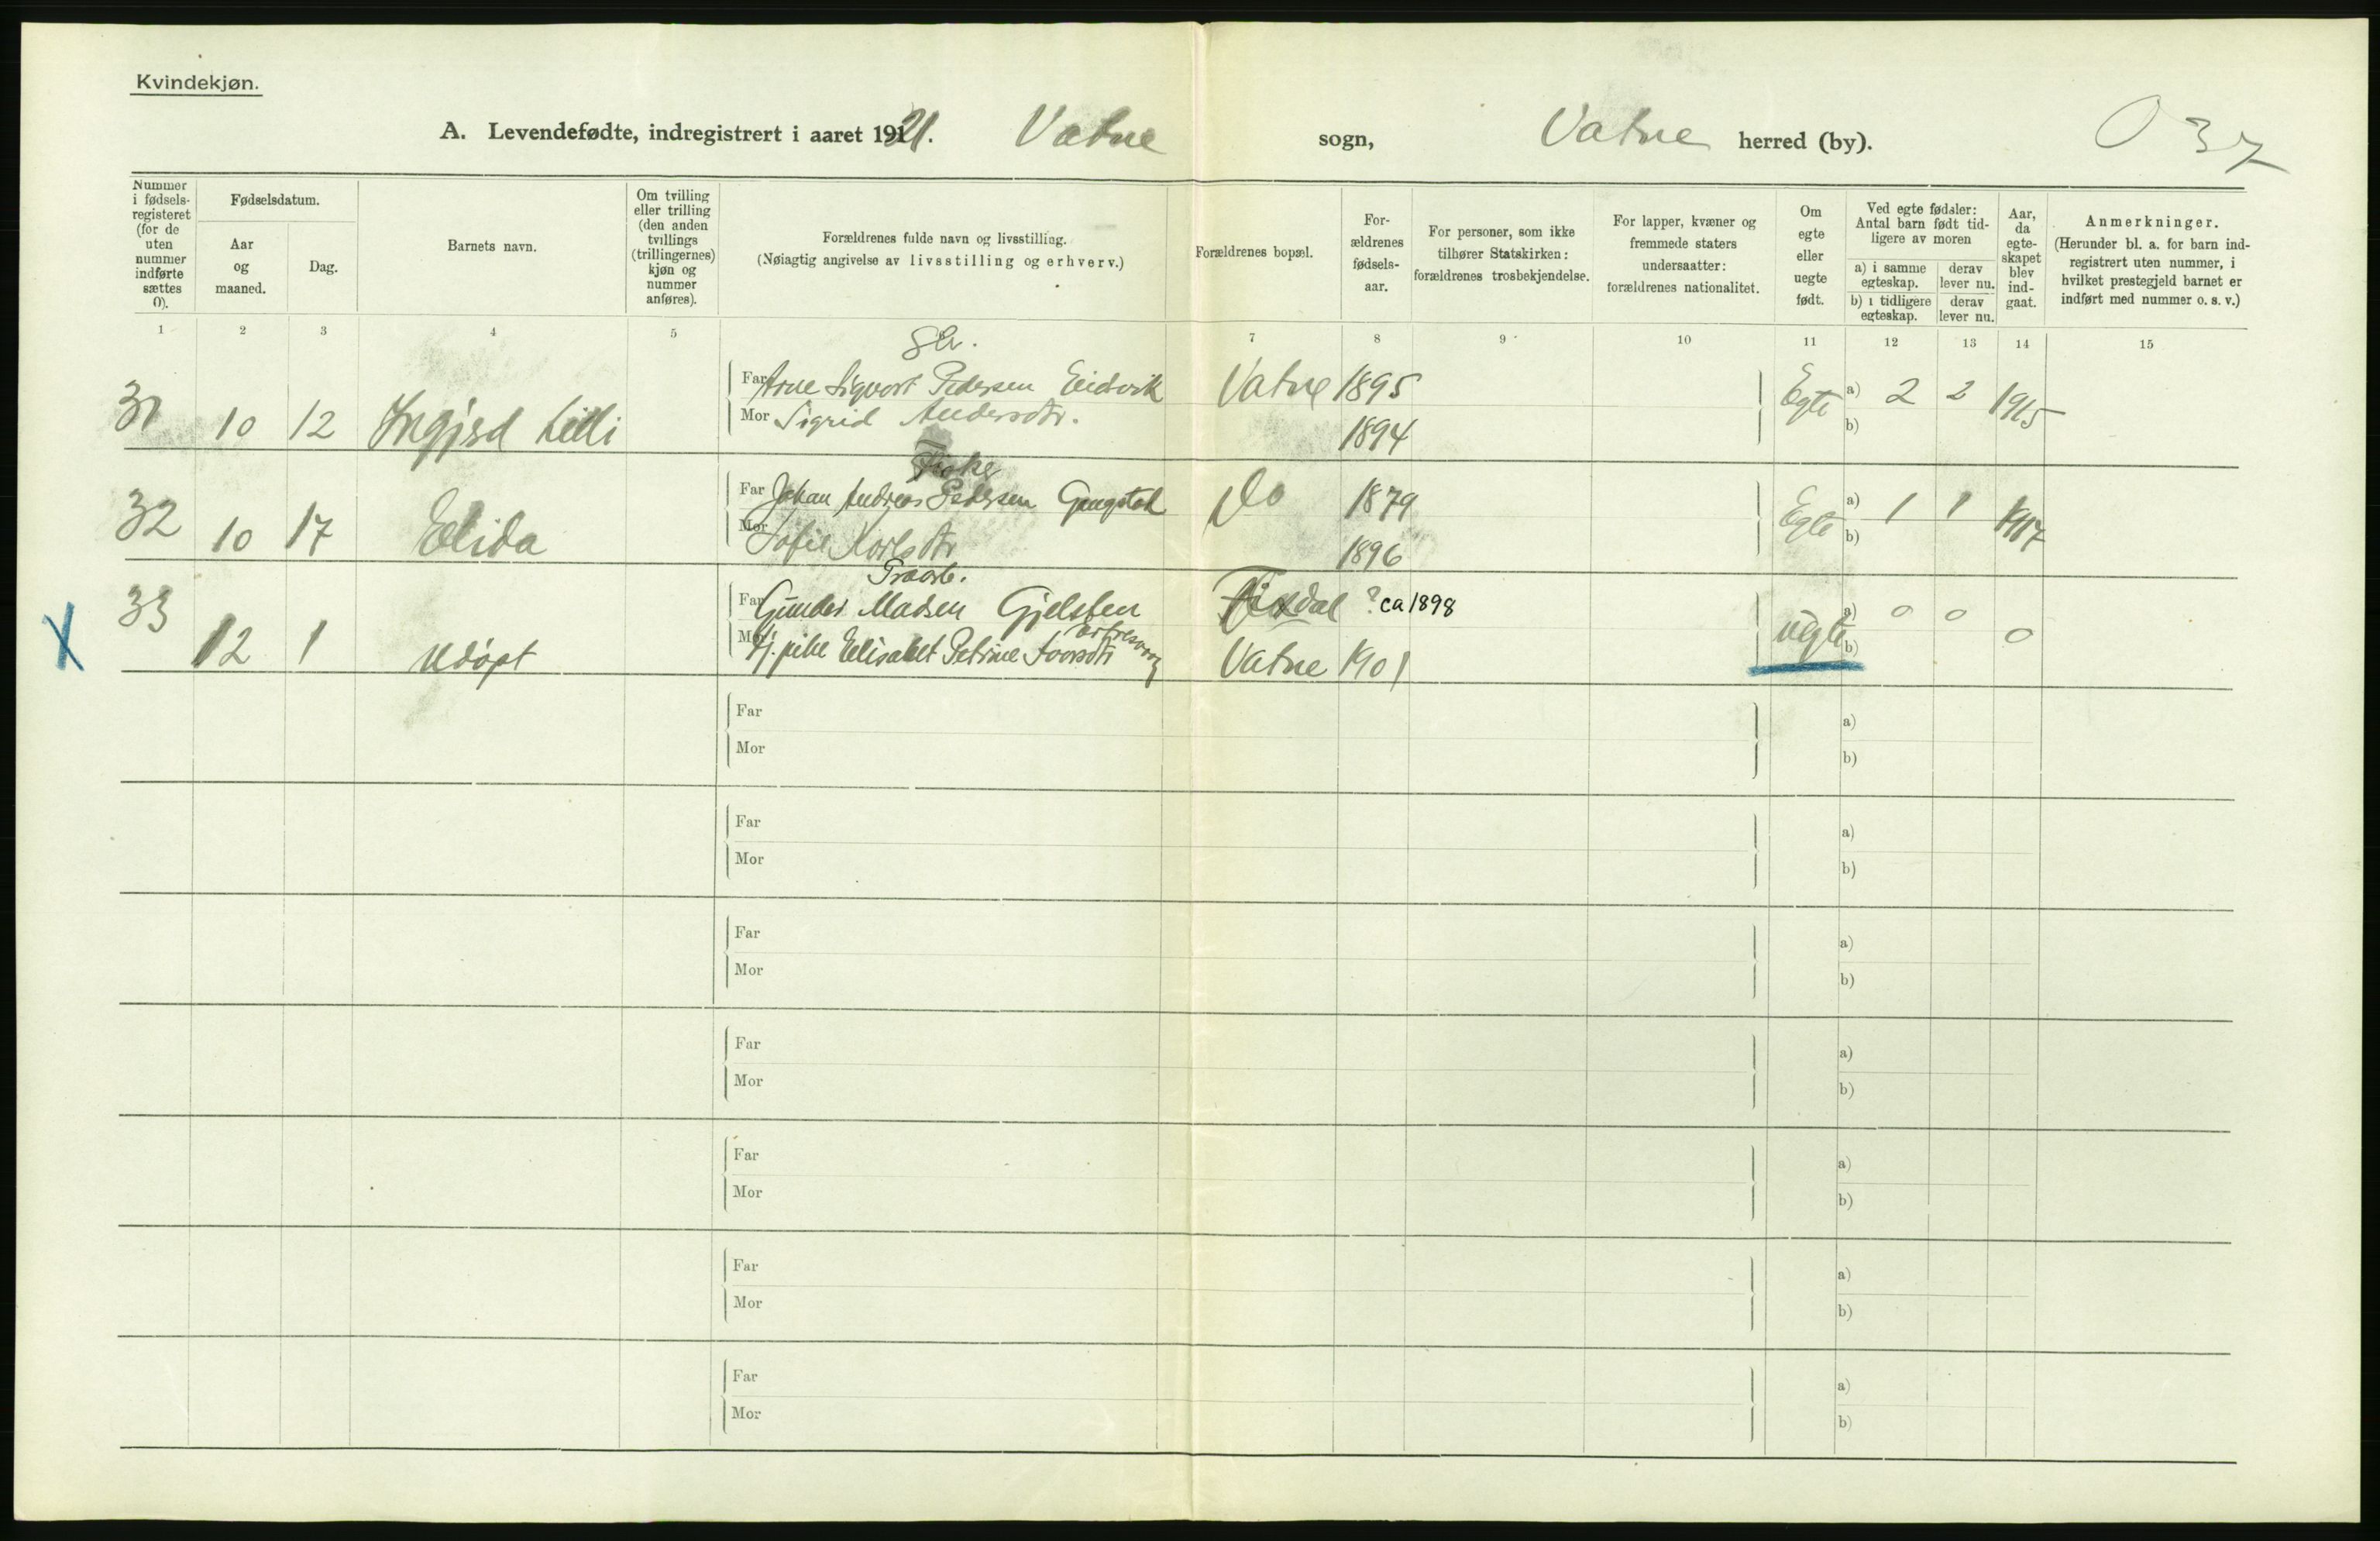 Kvindekjøn.
A. Levendefødte, indregistrert i aaret 1921. Vatne sogn, Vatne herred (by). O 37
Nummer i fødsels-registeret (for de uten nummer indførte sættes 0).
Fødselsdatum.
Aar og maaned.
Dag.
Barnets navn.
Om tvilling eller trilling (den anden tvillings (trillingernes) kjøn og nummer anføres).
Forældrenes fulde navn og livsstilling.
(Nøiagtig angivelse av livsstilling og erhverv.)
Forældrenes bopæl.
For-ældrenes fødsels-aar.
For personer, som ikke tilhører Statskirken: forældrenes trosbekjendelse.
For lapper, kvæner og fremmede staters undersaatter: forældrenes nationalitet.
Om egte eller uegte født.
Ved egte fødsler: Antal barn født tid-ligere av moren
a) i samme egteskap.
derav lever nu.
b) i tidligere egteskap.
derav lever nu.
Aar, da egte-skapet blev ind-gaat.
Anmerkninger.
(Herunder bl. a. for barn ind-registrert uten nummer, i hvilket prestegjeld barnet er indført med nummer o. s. v.)
1 2 3 4 5 7 8 9 10 11 12 13 14 15
Far Arne Sigvart Pedersen Eidsvik Vatne 1895 Egte a) 2 2 1915
31 10 12 Lilli Mor Sigrid Andersdtr. 1894 b)
Fisker
Far Johan Andreas Pedersen Gangstad Do 1879 Egte a) 1 1 1917
32 10 17 Elida Mor Sofie Karlsdtr 1896 b)
Far Gunder Madsen Gjelsten ? ca 1898 uegte a) 0 0 0
X 33 12 1 udøpt Mor pike Elisabet Petrine Vatne 1901 b)
Far a)
Mor b)
Far a)
Mor b)
Far a)
Mor b)
Far a)
Mor b)
Far a)
Mor b)
Far a)
Mor b)
Far a)
Mor b)